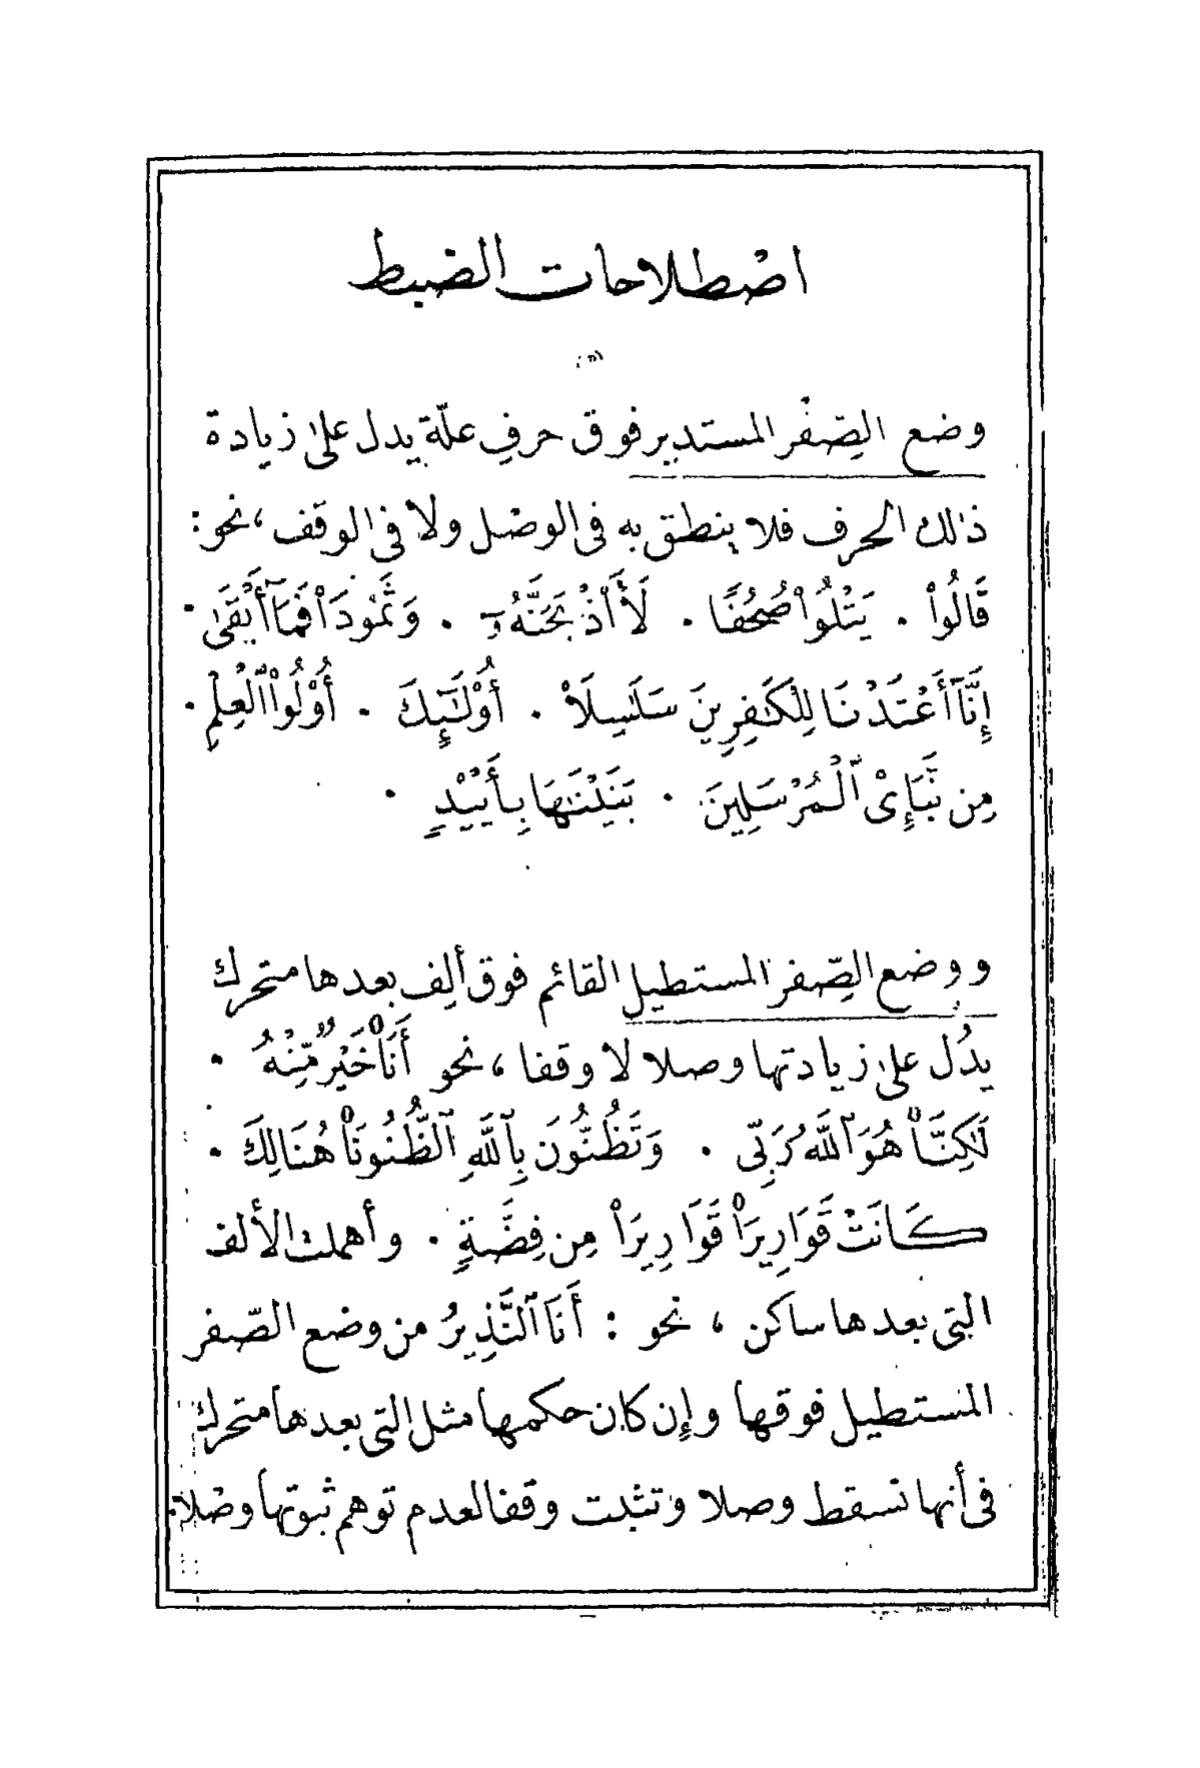 اصْطلاحات الضبط
وضع الصِّفْر المستدير فوق حرفِ علّة يدل على زيادة
ذلك الحرف فلا ينطق به فى الوصْل ولا في الوقف، نحو:
قَالُوا۟ . يَتْلُوا۟ صُحُفًا . لَأَا۟ذْبَحَنَّهُۥٓ . وَثَمُودَا۟ فَمَآ أَبْقَىٰ .
إِنَّآ أَعْتَدْنَا لِلْكَٰفِرِينَ سَلَٰسِلَا۟ . أُو۟لَٰٓئِكَ . أُو۟لُوا۟ ٱلْعِلْمِ .
مِن نَّبَإِى۟ ٱلْمُرْسَلِينَ . بَنَيْنَٰهَا بِأَيْي۟دٍ .
ووضع الصِّفر المستطيل القائم فوق ألِف بعدها متحرك
يدُل على زيادتها وصلا لا وقفا، نحو أَنَا۠ خَيْرٌ مِّنْهُ .
لَّٰكِنَّا۠ هُوَ ٱللَّهُ رَبِّى . وَتَظُنُّونَ بِٱللَّهِ ٱلظُّنُونَا۠ هُنَالِكَ .
كَانَتْ قَوَارِيرَا۠ قَوَارِيرَا۟ مِن فِضَّةٍ . وأهملت الألف
التى بعدها ساكن ، نحو : أَنَا ٱلنَّذِيرُ من وضع الصّفر
المستطيل فوقها وإن كان حكمها مثل التى بعدها متحرك
فى أنها تسقط وصلا وتثبت وقفا لعدم توهم ثبوتها وصْلا.